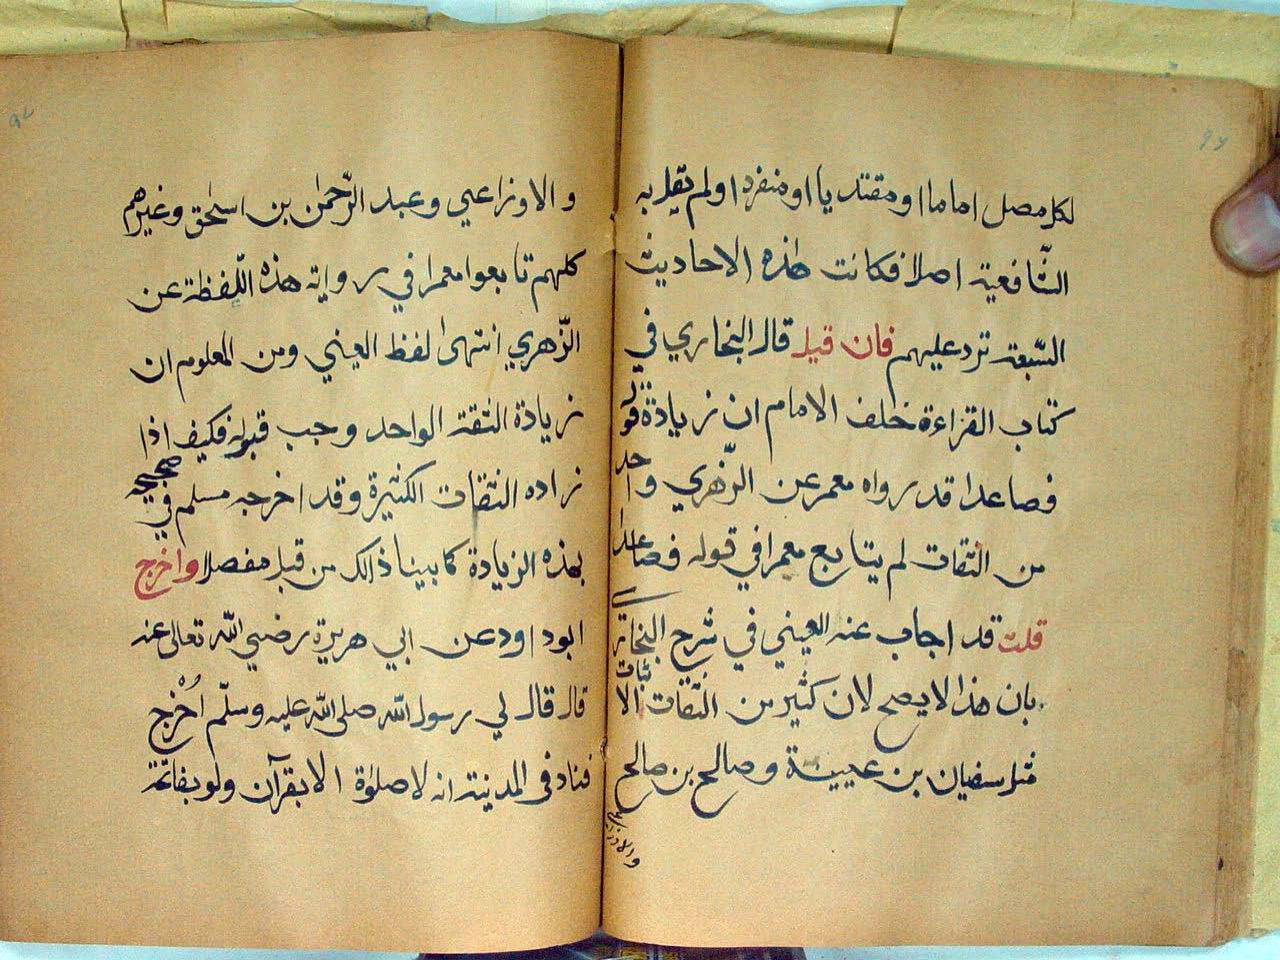 ٩٦
لكل مصل اماما او مقتديا او منفردا ولم يقل به
الشّافعية اصلا فكانت هٰذه الاحاديث
السّبعة ترد عليهم فان قيل قال البخاري في
كتاب القراءة خلف الامام ان زيادة قوله
فصاعدا قد رواه معمر عن الزّهري واحد
من الثقات لم يتابع معمرا في قوله فصاعدا
قلت قد اجاب عنه العيني في شرح البخاري
بان هذا لا يصح لان كثير من الثّقات الاثبات
مثل سفيان بن عيينة وصالح بن صالح
والاوزاعي
٩٧
والاوزاعي وعبد الرّحمٰن بن اسحٰق وغيرهم
كلهم تابعوا معمرا في رواية هذه اللّفظة عن
الزّهري انتهىٰ لفظ العيني ومن المعلوم ان
زيادة الثقة الواحد وجب قبوله فكيف اذا
زاده الثقات الكثيرة وقد اخرجه مسلم في صحيحه
بهذه الزيادة كما بينا ذالك من قبل مفصلا واخرج
ابو داود عن ابي هريرة رضي اللّه تعالى عنه
قال قال لي رسول اللّه صلى اللّه عليه وسلّم اُخْرج
فناد في المدينة انه لا صلوٰة الا بقرآن ولو بفاتحة